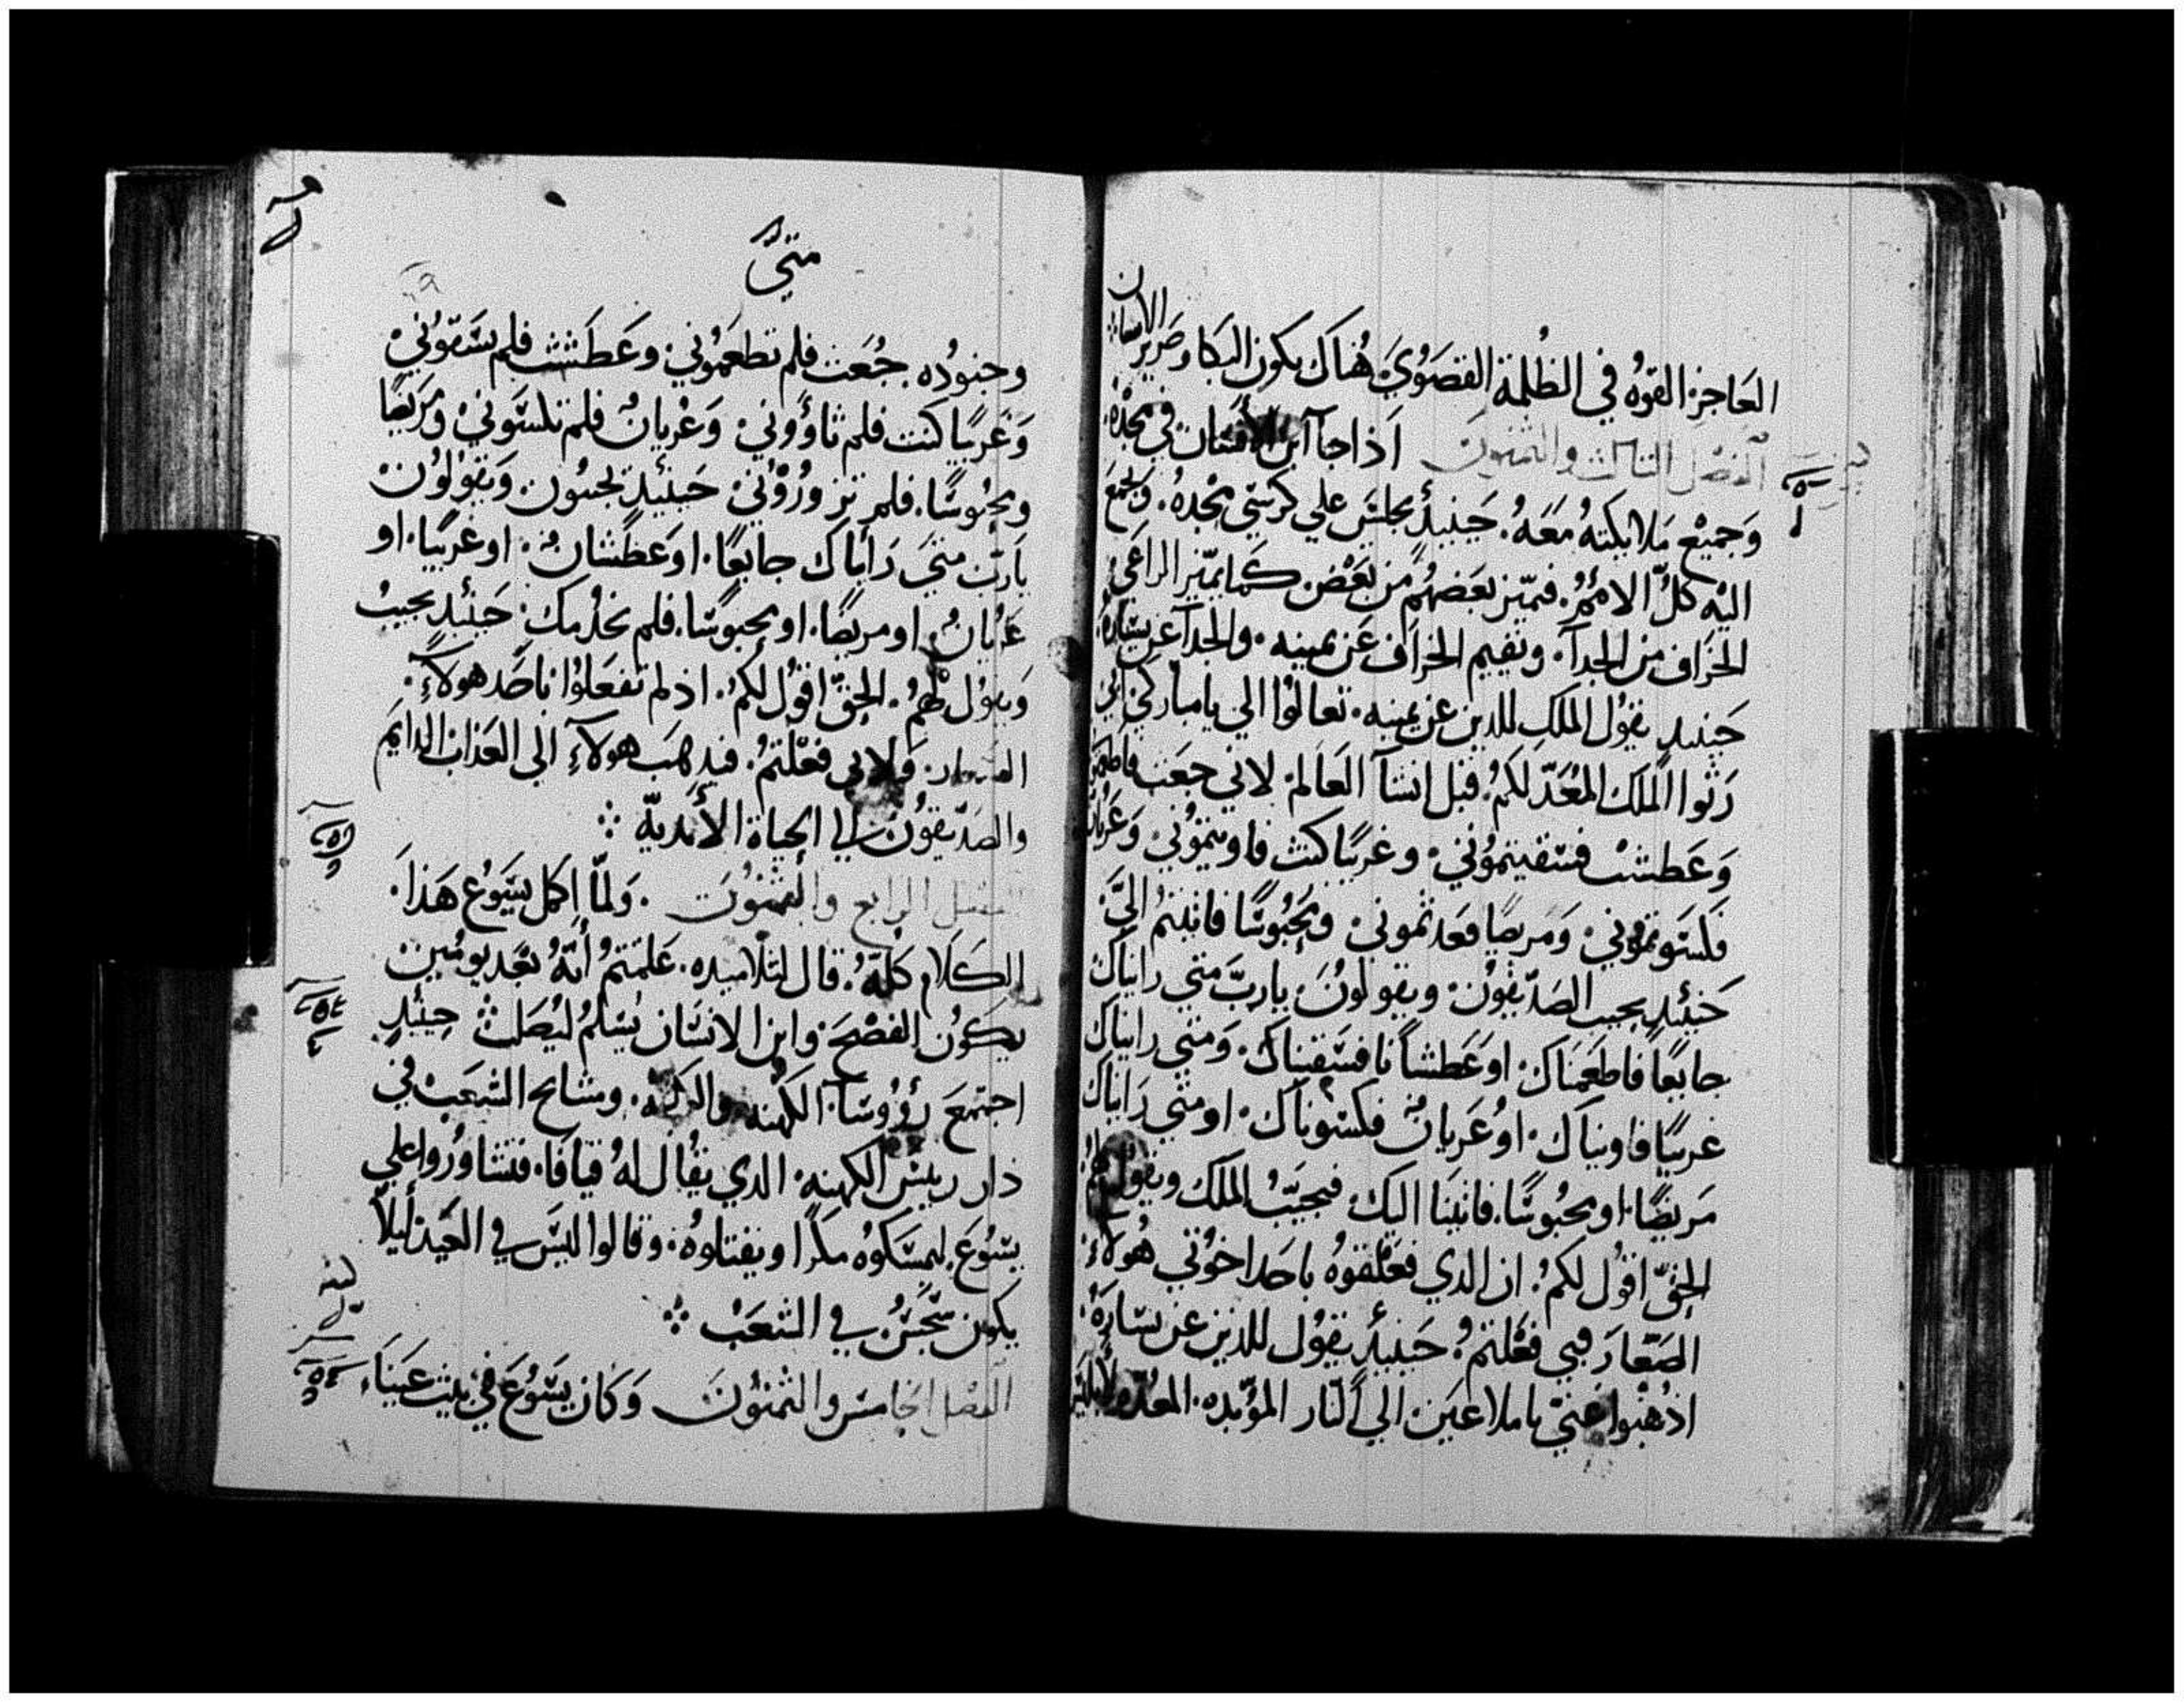 العَاجز القوهُ في الظُلمة القصَوُيَ هُناك يكون البكا وصَرير الاسنان
الفصل الثالث والثمنون اذا جا آبن الأنسَان في مجْدهُ
وَجميْع مَلايكتهُ مَعَهُ. حَينيذٍ يجلسَ علي كرسَي مجْدهُ. ويجمَع
اليْه كلُّ الامُمُ. فيميّز بعَضهُم من بَعْض كما يميّز الراعَي
الخرَاف من الجدآ. ويقيم الخرَاف عَن يمينه. والجدآ عَن يسَارهُ
حَينيدٍ يقوُل الملك للدين عن يمينه. تعالوُا الي يا مباركي ابي
رَثوا المُلك المُعَدّ لكمُ. قبل انشآ العَالم. لاني جعَت فاطعمتموني
وَعَطشت فسَقيتموُني. وغريبًا كنت فاويتموُني وعَريان
فكسَوتموُني. وَمَريضًا فعَدتموني. ومَحَبُوسًا فاتيتمُ اليَّ.
حَينئيدٍ يجيب الصَدّيقوُن. ويقولونُ يا ربّ متي رايناك
جايعًا فاطعَمنَاك. او عَطشاناً فسَقيناك. وَمتي رايناك
غريبًا فاويناك. اوُ عَريانٌ فكسَوناك. او متي رَايناك
مَريضًا. او محبُوسًا. فاتيَنا اليَك. فيجيَبُ الملك ويقول لهمُ
الحقّ اقوُل لكمُ. ان الدي فعَلتموُهُ باحَد اخوُتي هُولآءِ
الصَعَارَ فبي فعَلتمُ. حَينيذٍ يقوُل للدين عن يسَارهُ.
اذهَبوا عَنيّ يا ملاعَين الي الَنار المؤبده. المعُدّه لابليَس
متيّ
وجنوُده. جُعَت فلم تطعَموُني. وعَطشت فلم تسَقوُنيْ
وَغَريبًا كنت فلم تاؤوُنيْ. وَعْريانٌ فلم تلسَوُنيْ. ومَريضًا
ومحبُوسًا. فلم تزورُوُنيْ. حَينئيدٍ يجيبُون. وَيقوُلوُن
يا ربّ متيَ رَايناك جايعًا. او عَطشان. او غريبًا. او
عَريانٌ او مريضًا. او محبوسًا. فلم نخدُمك. حَينئيدٍ يجيبُ
وَيقوُل لهمُ. الحقّ اقوُل لكمُ. اذ لم تفعَلوُا باحَد هولآءِ.
الصَعار. ولا بي فعَلتمُ. فيدهَب هولآءِ الي العَذاب الدايَم
والصَدّيقوُن الي الحياة الأبديّه
الفصل الرابع والثمنُونَ. وَلماّ اكمل يسَوُع هَذَا
الكَلام كلهُ. قال لتلاميده. عَلمتمُ أنهُ بعَد يومُين
يكوُن الفصْحَ. وابن الانسَان يُسَلمُ ليُصَلب حيَئيدٍ
اجتمَع رؤُوسَآ الكهَنه والكتبه. ومشايح الشعَب في
دار رييسَ الكهنه. الدي يقُال لهُ قيافا. فتشاورُوا علي
يسَوُعَ. ليمسَكوُه مكرًا ويقتلوهُ. وقالوا ليسَ في العَيد ليلاّ
يكون سَجسٌ في الشعَبْ
الفصَل الخامسَ والثمنوُنَ وَكان يسَوُعَ في بيت عَيناَء